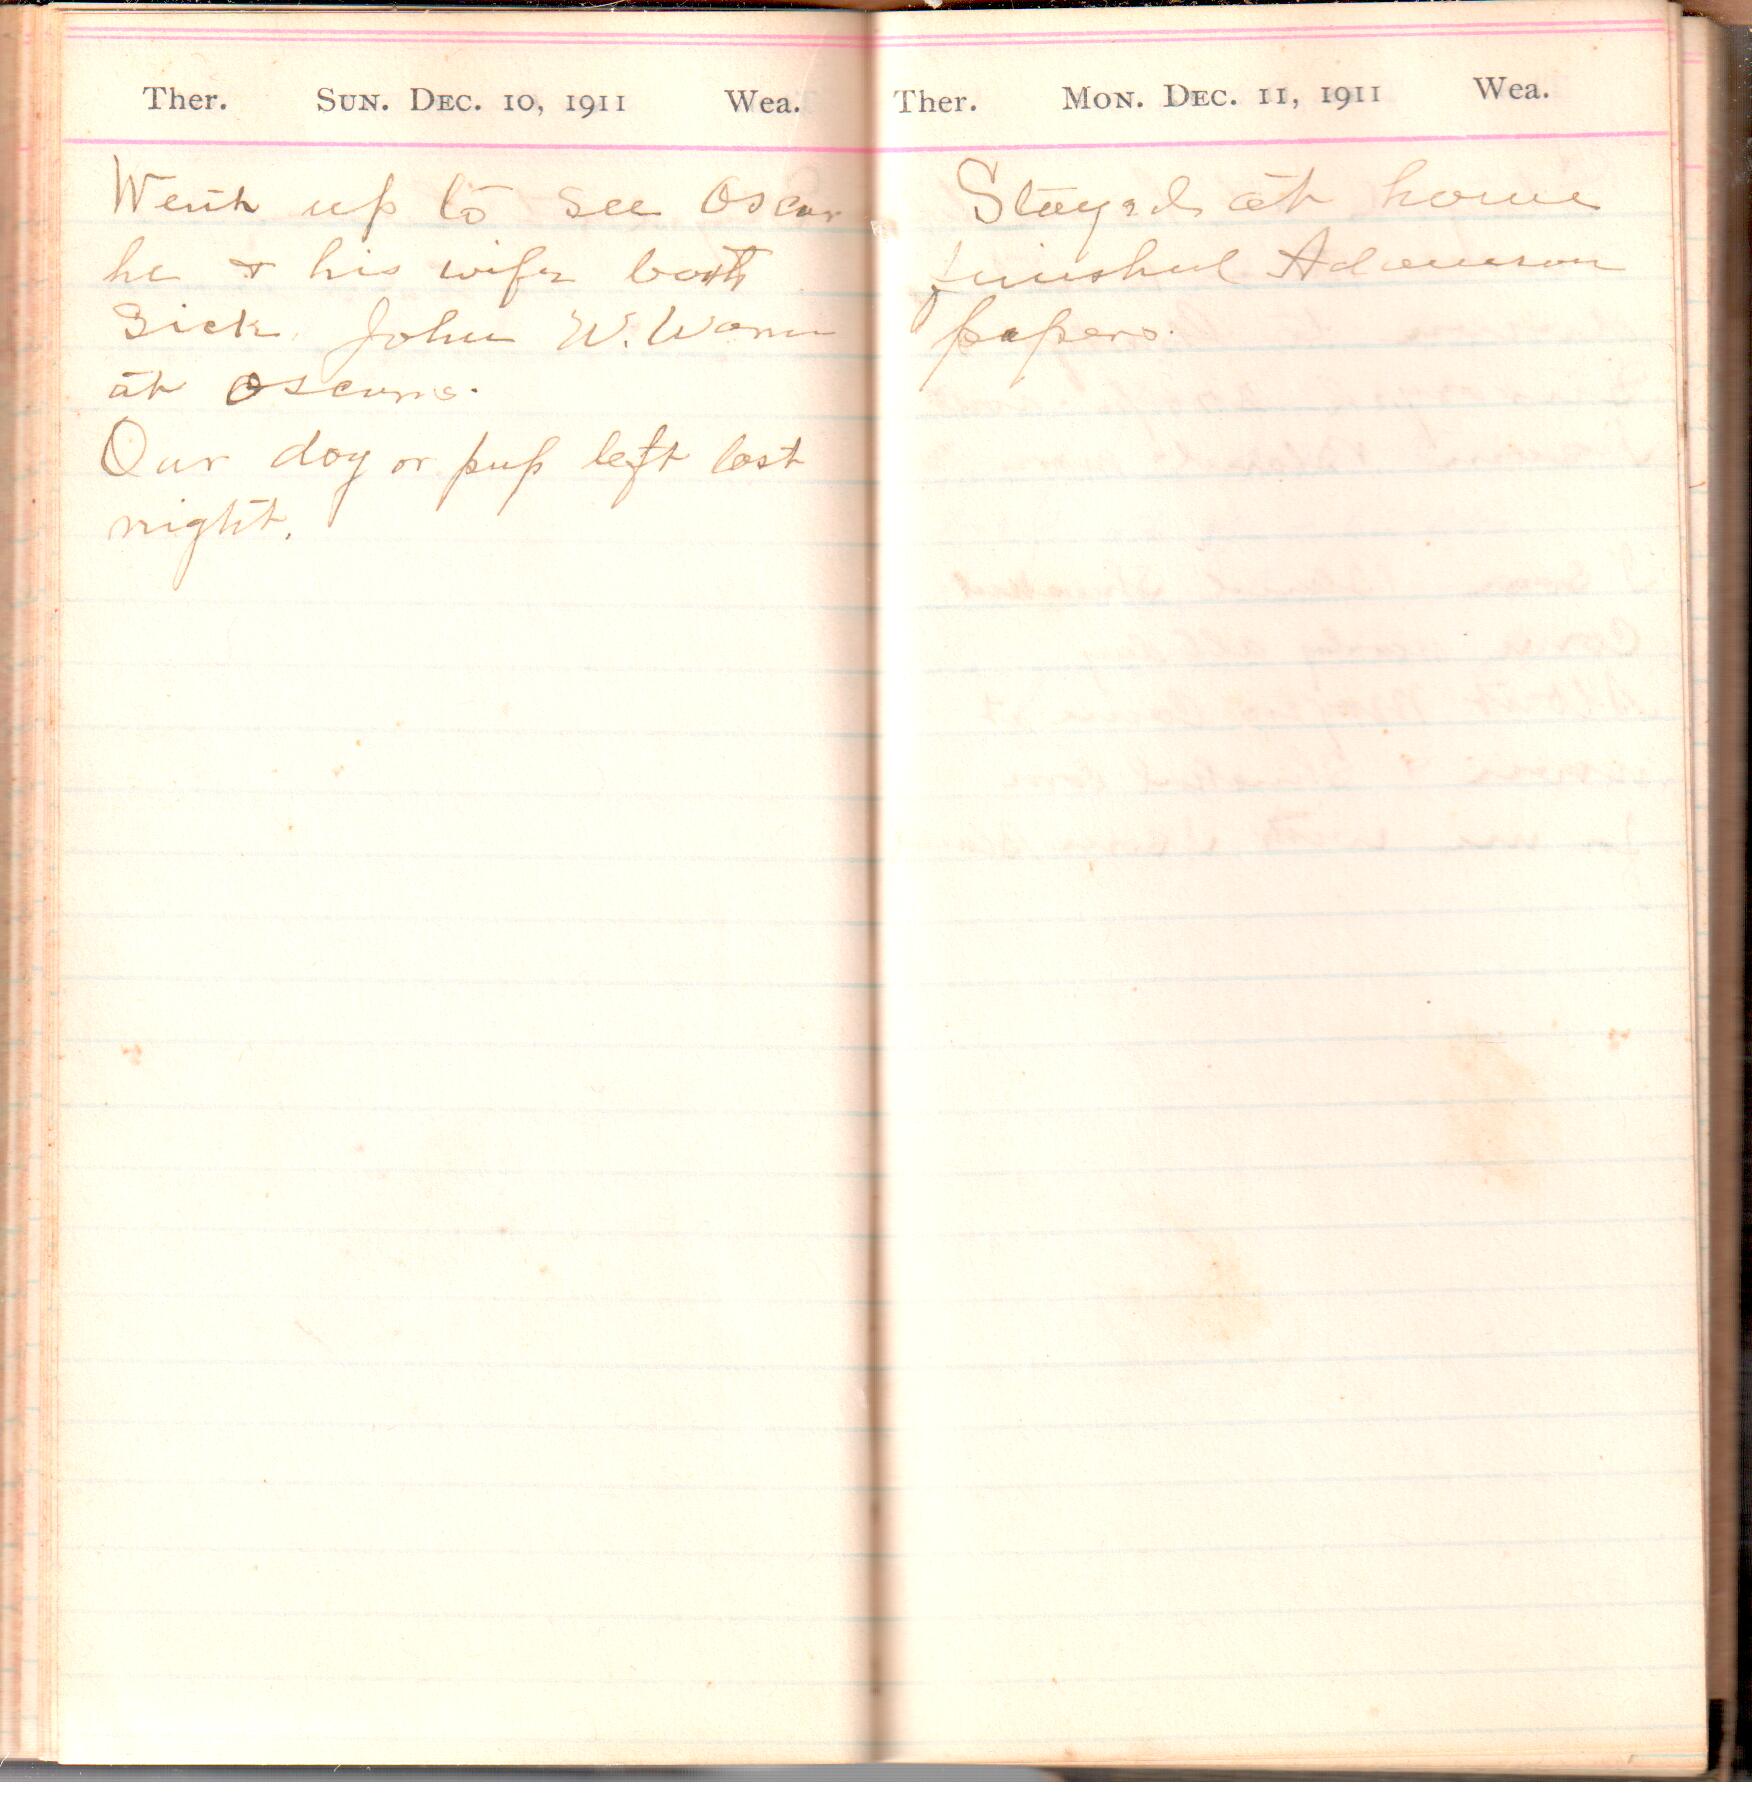 Ther. SUN. DEC. 10, 1911 Wea.
Went up to see Oscar
he & his wife both
Sick. John W. Wann
at Oscars.
Our dog or pup left last
night.
Ther. MON. DEC. 11, 1911 Wea.
Stayed at home
finished Adamson
papers.